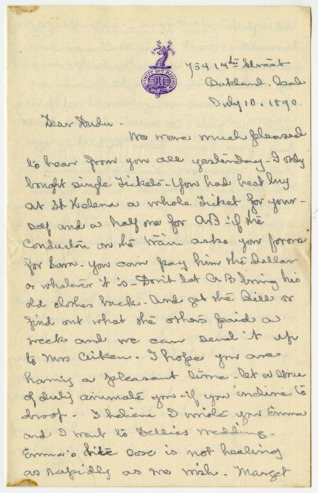 754 14th Street
Oakland. Cal
July 10. 1890.
Dear Dudu.
We were much pleased
to hear from you all yesterday - I only
bought single Tickets - You had best buy
at St Helena a whole Ticket for your-
self and a half one for AB if the
Conductor on the train asks you for one
for Sam. You can pay him the dollar
or whatever it is - Don't let AB bring his
old clothes back. And get the Bill or
find out what the others paid a
week and we can send it up
to Mrs Aiken. I hope you are
having a pleasant time - let a sense
of duty animate you - if you incline to
droop. - I believe I wrote you Emma
and I went to Nellies wedding -
Emma's case is not healing
as rapidly as we wish. Marget